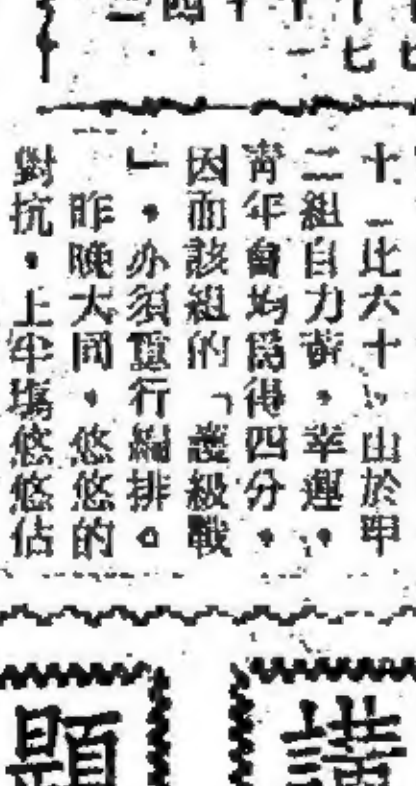 十一比六十，由於甲
二組自力、幸運、
靑年會均爲得四分，
因而該組的「護級戰
」，亦須重行編排。
昨晚大同，悠悠的
對抗，上半塲悠悠佔
題 講